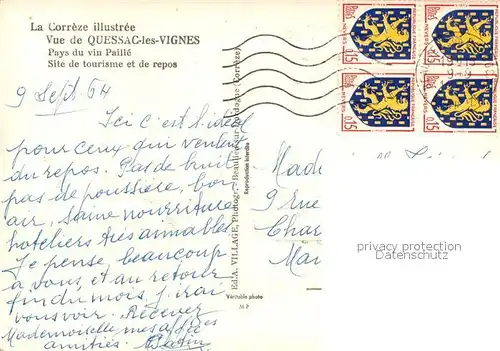 La Corrèze illustrée
Vue de QUESSAC-les-VIGNES
Pays du vin Paillé
Site de tourisme et de repos
9 Sept. 64
Ici c'est l'idéal
pour ceux qui veulent
du repos. Pas de bruit
pas de poussière, bon
air, saine nourriture
hoteliers très aimables
Je pense beaucoup
à vous, et au retour
fin du mois j'irai
vous voir. Recevez
Mademoiselle mes affectueuses
amitiés.
Ed. A. VILLAGE, Photogr. - Beaulieu-sur-Dordogne (Corrèze)
Reproduction interdite
Véritable photo
Made
9 rue
Char
Mai
0,15
0,15
0,15
0,15
REPUBLIQUE FRANÇAISE
NEVERS
privacy protection
Datenschutz